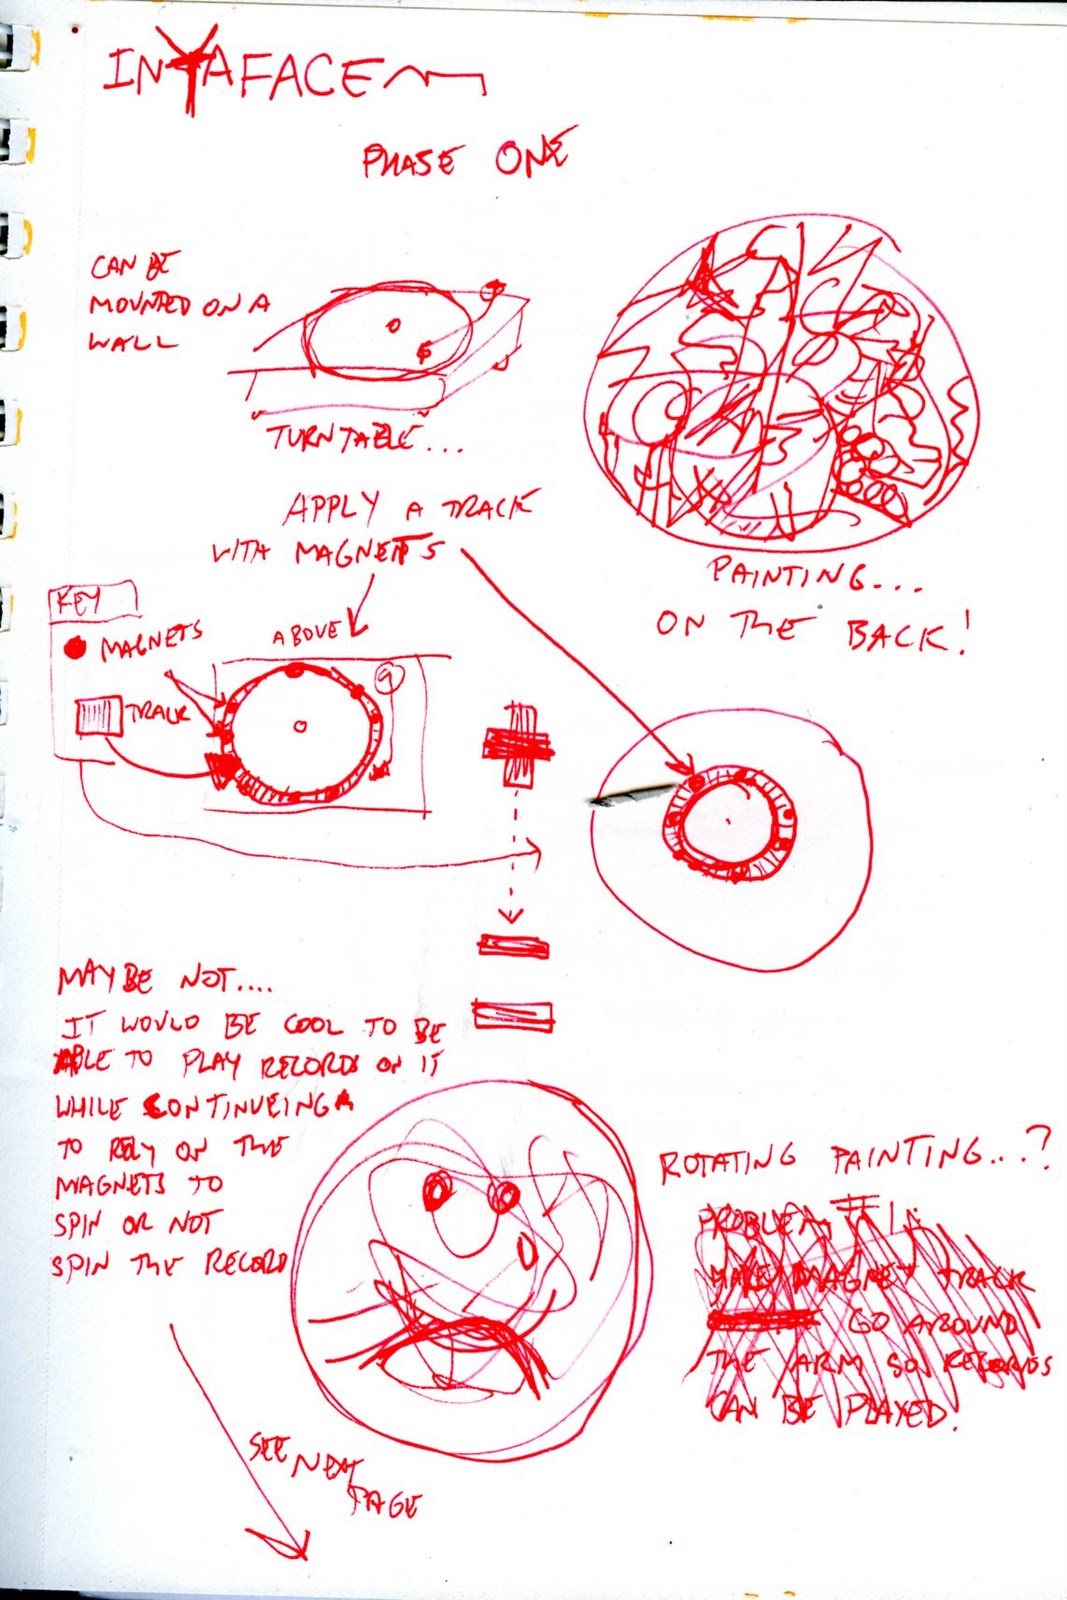 INYAFACE
PHASE ONE
CAN BE
MOUNTED ON A
WALL
TURNTABLE...
PAINTING...
ON THE BACK!
APPLY A TRACK
WITH MAGNETS
KEY
MAGNETS
TRACK
ABOVE
MAYBE NOT....
IT WOULD BE COOL TO BE
ABLE TO PLAY RECORDS ON IT
WHILE CONTINUEING
TO RELY ON THE
MAGNETS TO
SPIN OR NOT
SPIN THE RECORD
ROTATING PAINTING...?
PROBLEM #1:
MAKE MAGNET TRACK
GO AROUND
THE ARM SO RECORDS
CAN BE PLAYED.
SEE NEXT
PAGE